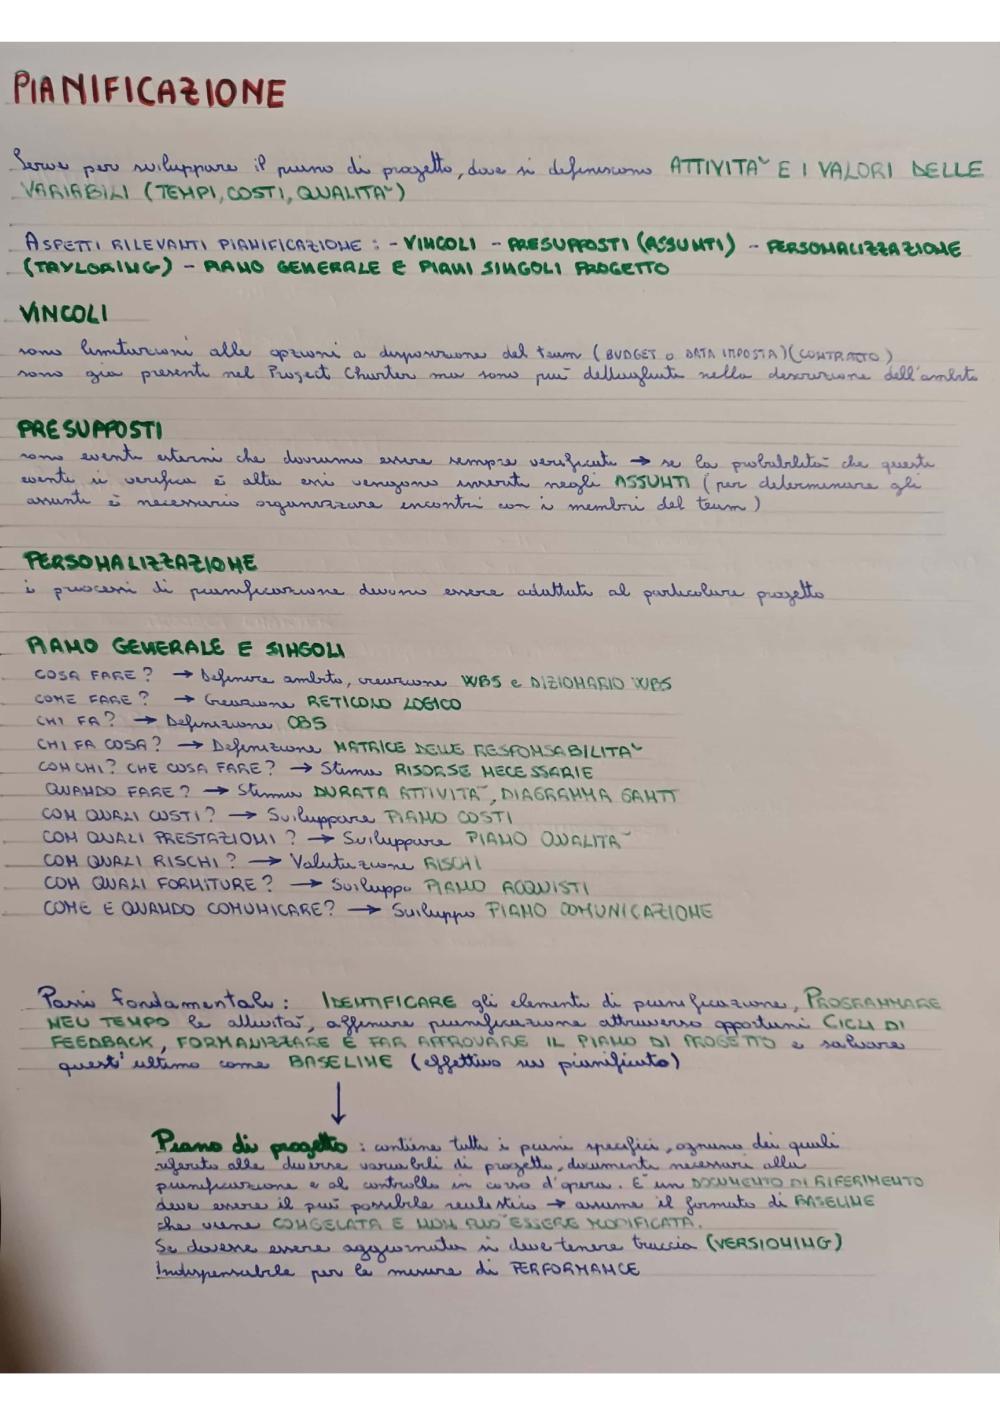 PIANIFICAZIONE
Serve per sviluppare il piano di progetto, dove si definiscono ATTIVITA' E I VALORI DELLE
VARIABILI (TEMPI, COSTI, QUALITA')
ASPETTI RILEVANTI PIANIFICAZIONE : - VINCOLI - PRESUPPOSTI (ASSUNTI) - PERSONALIZZAZIONE
(TAYLORING) - PIANO GENERALE E PIANI SINGOLI PROGETTO
VINCOLI
sono limitazioni alle opzioni a disposizione del team (BUDGET o DATA IMPOSTA) (CONTRATTO)
sono già presenti nel Project Charter ma sono più dettagliati nella descrizione dell'ambito
PRESUPPOSTI
sono eventi esterni che dovranno essere sempre verificati → se la probabilità che questi
eventi si verifica è alta essi vengono inseriti negli ASSUNTI (per determinare gli
assunti è necessario organizzare incontri con i membri del team)
PERSONALIZZAZIONE
i processi di pianificazione devono essere adattati al particolare progetto
PIANO GENERALE E SINGOLI
COSA FARE? → Definire ambito, creazione WBS e DIZIONARIO WBS
COME FARE? → Creazione RETICOLO LOGICO
CHI FA? → Definizione OBS
CHI FA COSA? → Definizione MATRICE DELLE RESPONSABILITA'
CON CHI? CHE COSA FARE? → Stima RISORSE NECESSARIE
QUANDO FARE? → Stima DURATA ATTIVITA', DIAGRAMMA GANTT
CON QUALI COSTI? → Sviluppare PIANO COSTI
CON QUALI PRESTAZIONI? → Sviluppare PIANO QUALITA'
CON QUALI RISCHI? → Valutazione RISCHI
CON QUALI FORNITURE? → Sviluppo PIANO ACQUISTI
COME E QUANDO COMUNICARE? → Sviluppo PIANO COMUNICAZIONE
Passi fondamentali : IDENTIFICARE gli elementi di pianificazione, PROGRAMMARE
NEL TEMPO le attività, affinare pianificazione attraverso opportuni CICLI DI
FEEDBACK, FORMALIZZARE E FAR APPROVARE IL PIANO DI PROGETTO e salvare
quest'ultimo come BASELINE (effettivo su pianificato)
↓
Piano di progetto : contiene tutti i piani specifici, ognuno dei quali
riferito alle diverse variabili di progetto, documenti necessari alla
pianificazione e al controllo in corso d'opera. E' un DOCUMENTO DI RIFERIMENTO
deve essere il più possibile realistico → assume il formato di BASELINE
che viene CONGELATA E NON PUO' ESSERE MODIFICATA.
Se dovesse essere aggiornata si deve tenere traccia (VERSIONING)
Indispensabile per le misure di PERFORMANCE